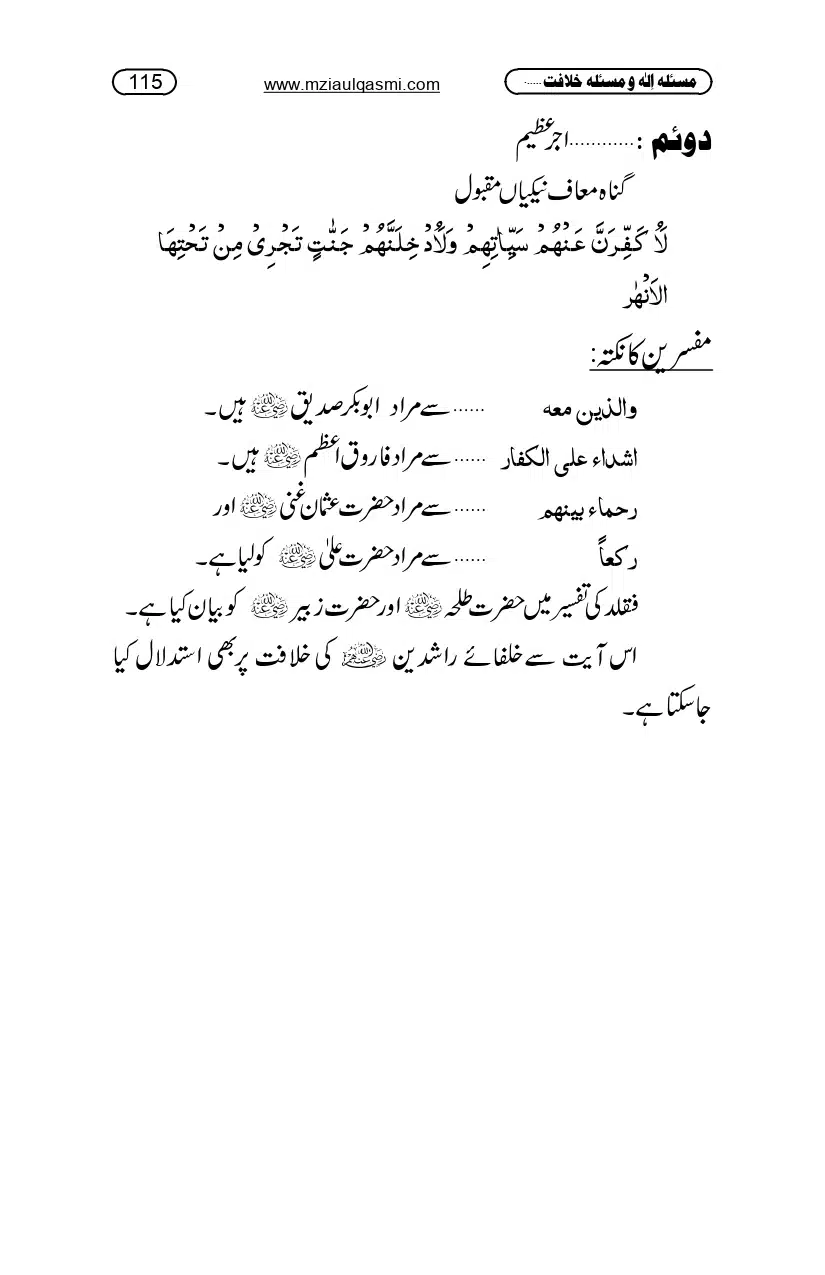 مسئلہ اِلٰہ و مسئلہ خلافت ...... www.mziaulqasmi.com 115
دوئم : ............اجر عظیم
گناہ معاف نیکیاں مقبول
لَاُ كَفِّرَنَّ عَنْهُمْ سَيِّاٰتِهِمْ وَلَاُدْخِلَنَّهُمْ جَنّٰتٍ تَجْرِیْ مِنْ تَحْتِهَا
الاَنْهٰر
مفسرین کا نکتہ:
والذین معہ ......سے مراد ابوبکر صدیق رضی اللہ عنہ ہیں۔
اشداء علی الکفار ......سے مراد فاروق اعظم رضی اللہ عنہ ہیں۔
رحماء بینھم ......سے مراد حضرت عثمان غنی رضی اللہ عنہ اور
رکعاً ......سے مراد حضرت علیؓ رضی اللہ عنہ کو لیا ہے۔
فقلد کی تفسیر میں حضرت طلحہ رضی اللہ عنہ اور حضرت زبیر رضی اللہ عنہ کو بیان کیا ہے۔
اس آیت سے خلفائے راشدین رضی اللہ عنہم کی خلافت پر بھی استدلال کیا
جاسکتا ہے۔